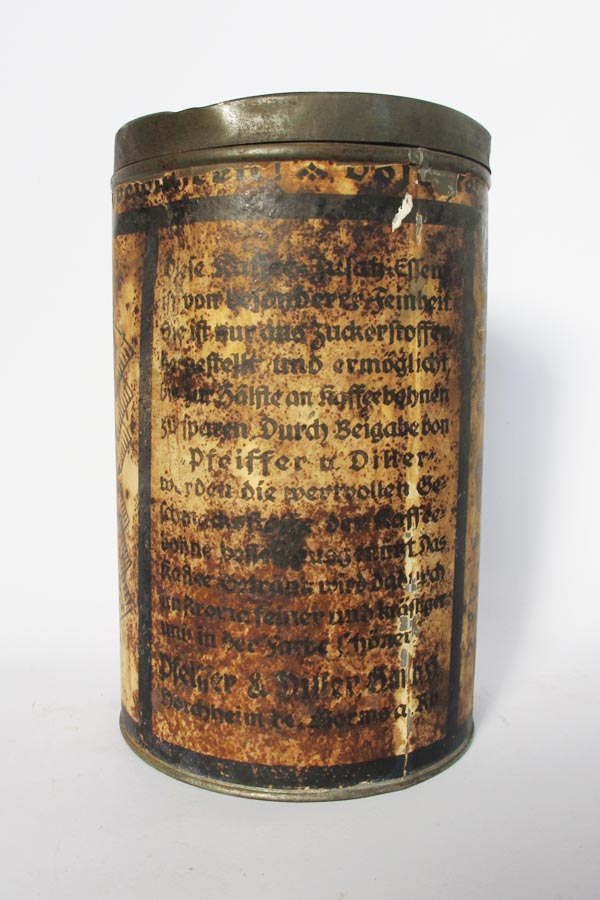 Diese Kaffee-Zusatz-Essenz
ist von besonderer Feinheit
Sie ist nur aus Zuckerstoffen
hergestellt und ermöglicht,
bis zur Hälfte an Kaffeebohnen
zu sparen. Durch Beigabe von
Pfeiffer u. Diller
werden die wertvollen Ge-
schmacksstoffe der Kaffee-
bohne besser ausgenützt. Das
Kaffee-Getränk wird dadurch
feiner und kräftiger
und in der Farbe schöner.
Pfeiffer & Diller G.m.b.H.
Horchheim bei Worms a. Rh.